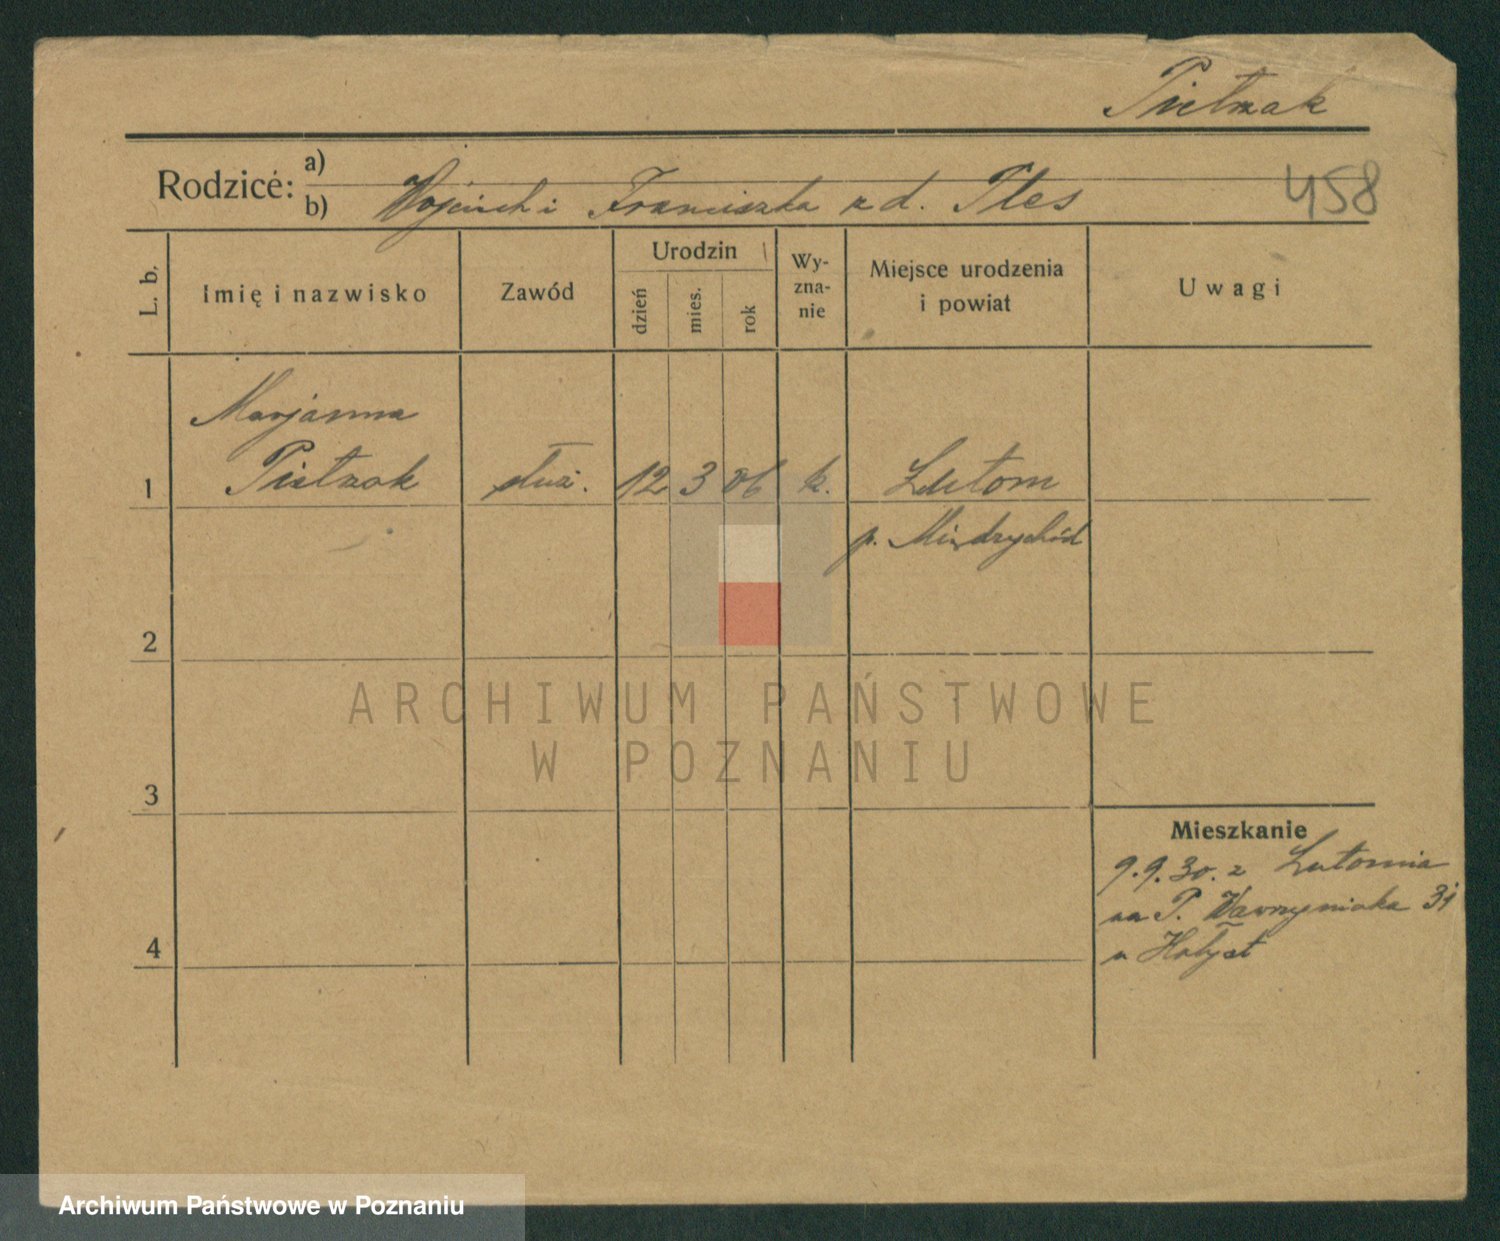 Pietrzak
Rodzice: a)
b) Wojciech i Franciszka z d. Ples
458
L. b.
Imię i nazwisko
Zawód
Urodzin
dzień
mies.
rok
Wy-
zna-
nie
Miejsce urodzenia
i powiat
Uwagi
Marjanna
1 Pietrzak służ. 12 3 06 k. Lutom
p. Międzychód
2
ARCHIWUM PAŃSTWOWE
W POZNANIU
3
Mieszkanie
9.9.30. z Lutomia
na P. Wawrzyniaka 31
u
4
Archiwum Państwowe w Poznaniu